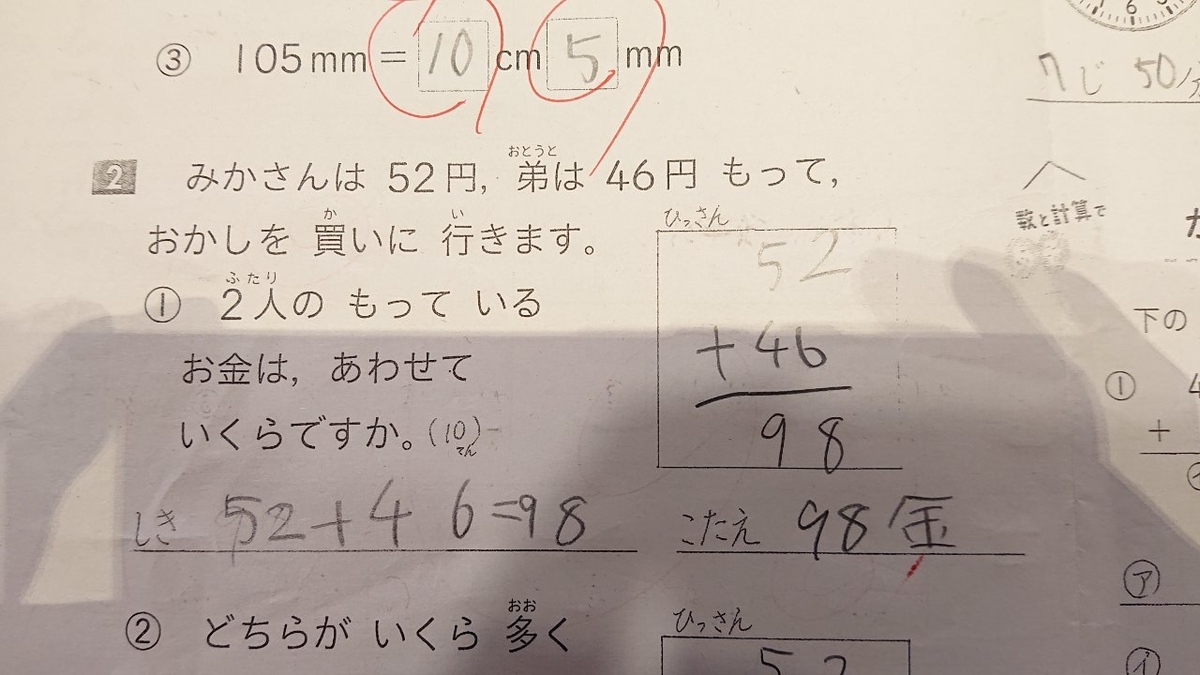 ③ 105mm = 10 cm 5 mm
7じ 50分
2 みかさんは 52円, 弟は 46円 もって,
おとうと
おかしを 買いに 行きます。
か い
① 2人の もって いる
ふたり
お金は, あわせて
いくらですか。(10てん)
ひっさん
52
+46
98
しき 52+46=98
こたえ 98金
② どちらが いくら 多く
おお
ひっさん
52
6
数と計算で
下の
① 4
+
㋐
㋑